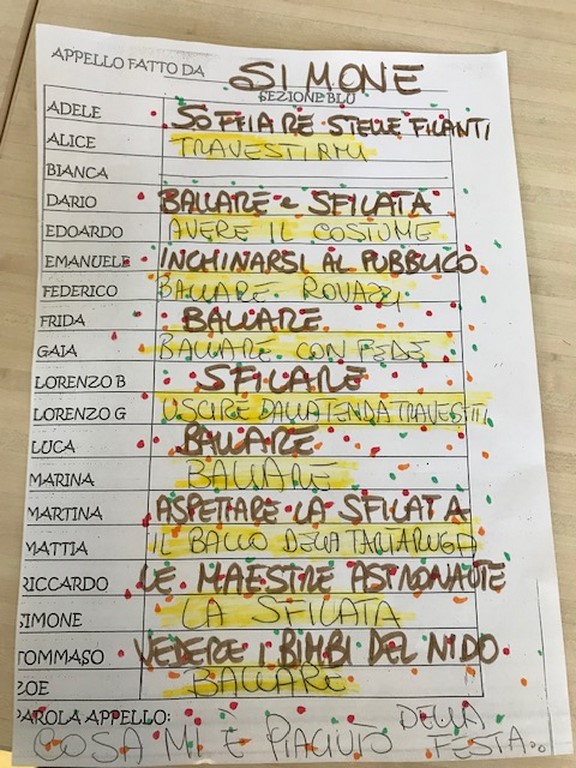 APPELLO FATTO DA SIMONE
SEZIONE BLU
ADELE SOFFIARE STELLE FILANTI
ALICE TRAVESTIRMI
BIANCA
DARIO BALLARE e SFILATA
EDOARDO AVERE IL COSTUME
EMANUELE INCHINARSI AL PUBBLICO
FEDERICO BALLARE ROVAZZI
FRIDA BALLARE
GAIA BALLARE CON FEDE
LORENZO B SFILARE
LORENZO G USCIRE DALLA TENDA TRAVESTITI
LUCA BALLARE
MARINA BALLARE
MARTINA ASPETTARE LA SFILATA
MATTIA IL BALLO DELLA TARTARUGA
RICCARDO LE MAESTRE ASTRONAUTE
SIMONE LA SFILATA
TOMMASO VEDERE I BIMBI DEL NIDO
ZOE BALLARE
PAROLA APPELLO:
COSA MI È PIACIUTO DELLA FESTA...